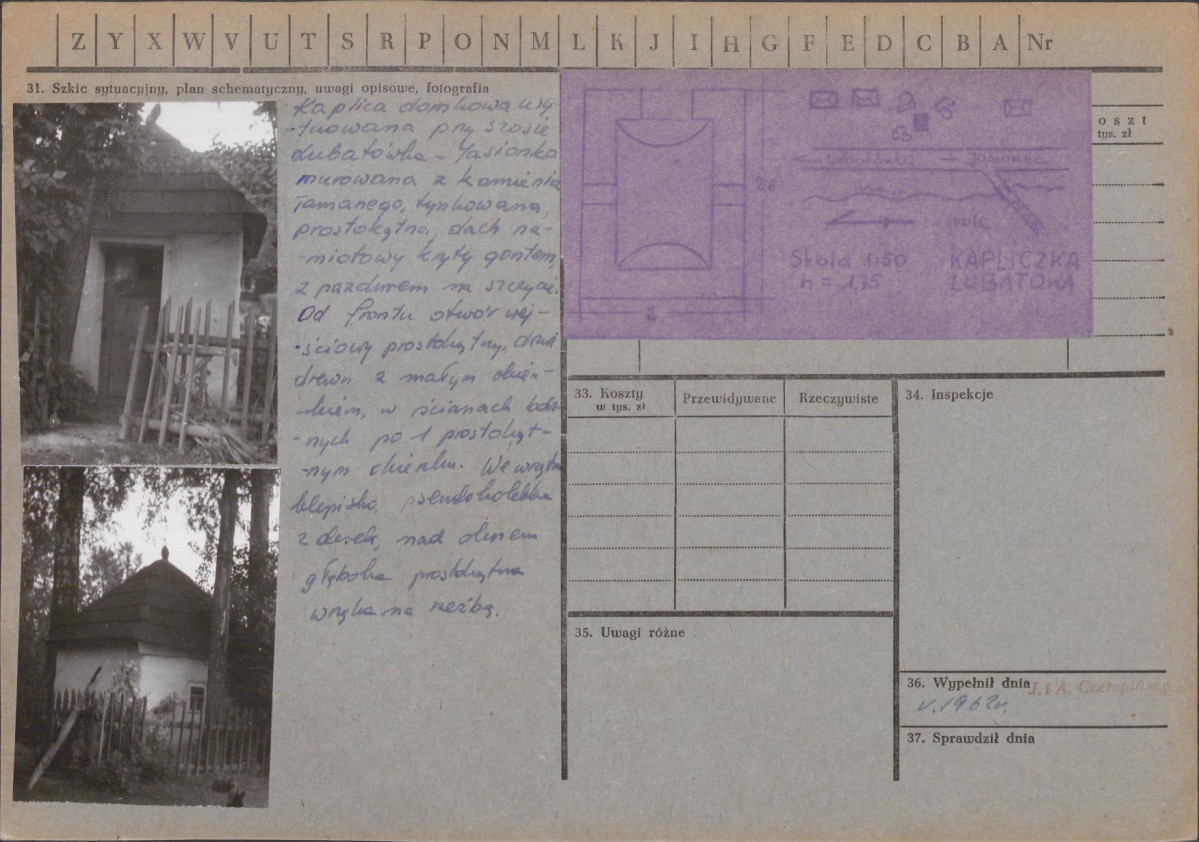 Z Y X W V U T S R P O N M L K J I H G F E D C B A Nr
31. Szkic sytuacyjny, plan schematyczny, uwagi opisowe, fotografia
Kaplica domkowa usy-
-tuowana przy szosie
Lubatówka - Jasionka
murowana z kamienia
łamanego, tynkowana,
prostokątna, dach na-
-miotowy kryty gontem,
z pazdurem na szczycie.
Od frontu otwór wej-
-ściowy prostokątny, drzwi
drewn. z małym okien-
-kiem, w ścianach bocz-
-nych po 1 prostokąt-
-nym okienku. We wnętrzu
klepisko, pseudokolebka
z desek, nad oknem
głęboka prostokątna
wnęka na rzeźbę.
26
2
Lubatówka
Jasionka
pole
Skala 1:50
h = 1,75
KAPLICZKA
LUBATOWA
oszt
tys. zł
33. Koszty
w tys. zł
Przewidywane
Rzeczywiste
34. Inspekcje
35. Uwagi różne
36. Wypełnił dnia
J. i A. Czerepińscy
V. 1962r.
37. Sprawdził dnia